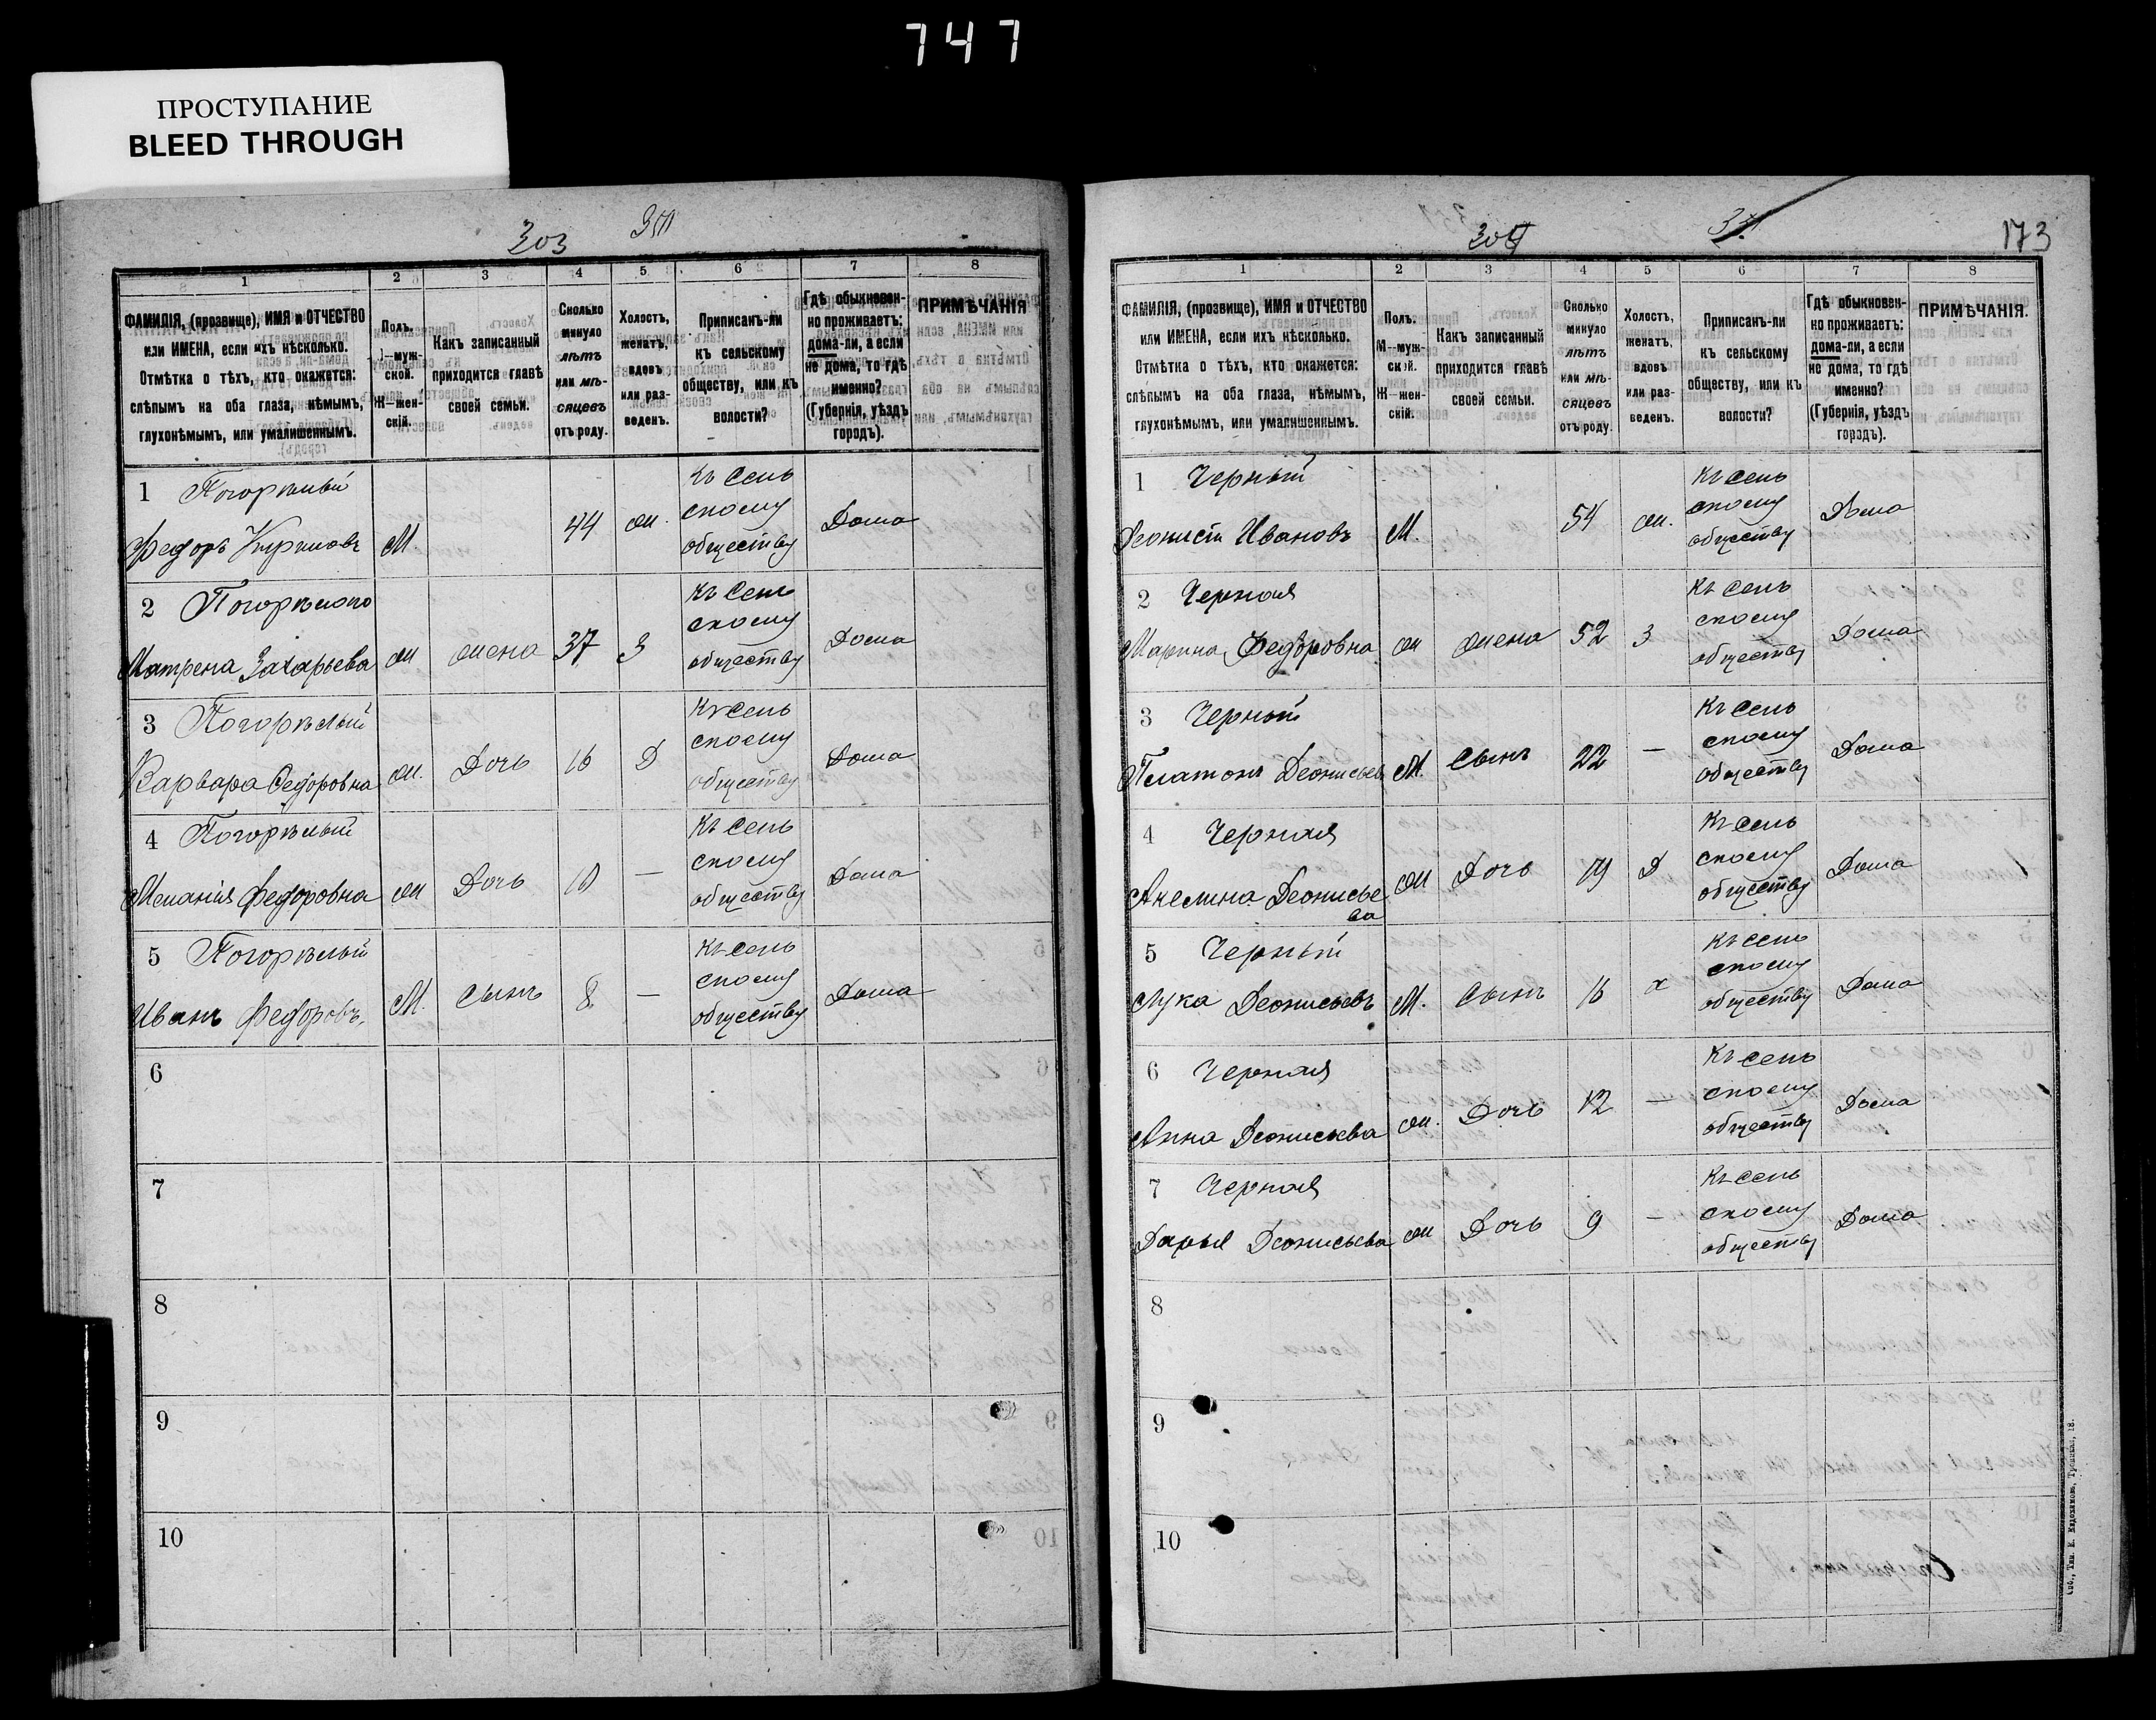 747
ПРОСТУПАНИЕ
BLEED THROUGH
303
1 2 3 4 5 6 7 8
ФАМИЛІЯ, (прозвище), ИМЯ и ОТЧЕСТВО или ИМЕНА, если ихъ нѣсколько. Отмѣтка о тѣхъ, кто окажется: слѣпымъ на оба глаза, нѣмымъ, глухонѣмымъ, или умалишеннымъ.
Полъ. —муж-ской. Ж—жен-скій.
Какъ записанный приходится главѣ своей семьи.
Сколько минуло лѣтъ или мѣ-сяцевъ отъ роду.
Холостъ, женатъ, вдовъ или раз-веденъ.
Приписанъ-ли къ сельскому обществу, или къ волости?
Гдѣ обыкновен-но проживаетъ: дома-ли, а если не дома, то гдѣ именно? (Губернія, уѣздъ городъ).
ПРИМѢЧАНІЯ
1 Погорѣлый
Федоръ Кириловъ М 44 ж. Къ сель скому обществу Дома
2 Погорѣлого
Матрена Захарьева ж жена 37 З Къ сель скому обществу Дома
3 Погорѣлый
Варвара Федоровна ж. Дочь 16 Д Къ сель скому обществу Дома
4 Погорѣлый
Меланія Федоровна ж Дочь — Къ сель скому обществу Дома
5 Погорѣлый
Иванъ Федоровъ. М. сынъ 8 — Къ сель скому обществу Дома
6
7
8
9
10
173
1 2 3 4 5 6 7 8
ФАМИЛІЯ, (прозвище), ИМЯ и ОТЧЕСТВО или ИМЕНА, если ихъ нѣсколько. Отмѣтка о тѣхъ, кто окажется: слѣпымъ на оба глаза, нѣмымъ, глухонѣмымъ, или умалишеннымъ.
Полъ. М—муж-ской. Ж—жен-скій.
Какъ записанный приходится главѣ своей семьи.
Сколько минуло лѣтъ или мѣ-сяцевъ отъ роду.
Холостъ, женатъ, вдовъ или раз-веденъ.
Приписанъ-ли къ сельскому обществу, или къ волости?
Гдѣ обыкновен-но проживаетъ: дома-ли, а если не дома, то гдѣ именно? (Губернія, уѣздъ городъ).
ПРИМѢЧАНІЯ.
1 Черный
Деонисъ Ивановъ М. 54 ж. Къ сель скому обществу Дома
2 Черная
Марина Федоровна ж жена 52 З Къ сель скому обществу Дома
3 Черный
Платонъ Деонисьев М. Сынъ 22 — Къ сель скому обществу Дома
4 Черная
Акелина Деонисье ва ж Дочь 19 Д Къ сель скому обществу Дома
5 Черный
Лука Деонисьевъ М. Сынъ 16 х Къ сель скому обществу Дома
6 Черная
Анна Деонисьева ж. Дочь 12 — Къ сель скому обществу Дома
7 Черная
Дарья Деонисьева ж Дочь 9 — Къ сель скому обществу Дома
8
9
10
Тип. Е. Евдокимовъ, Троицкая, 18.